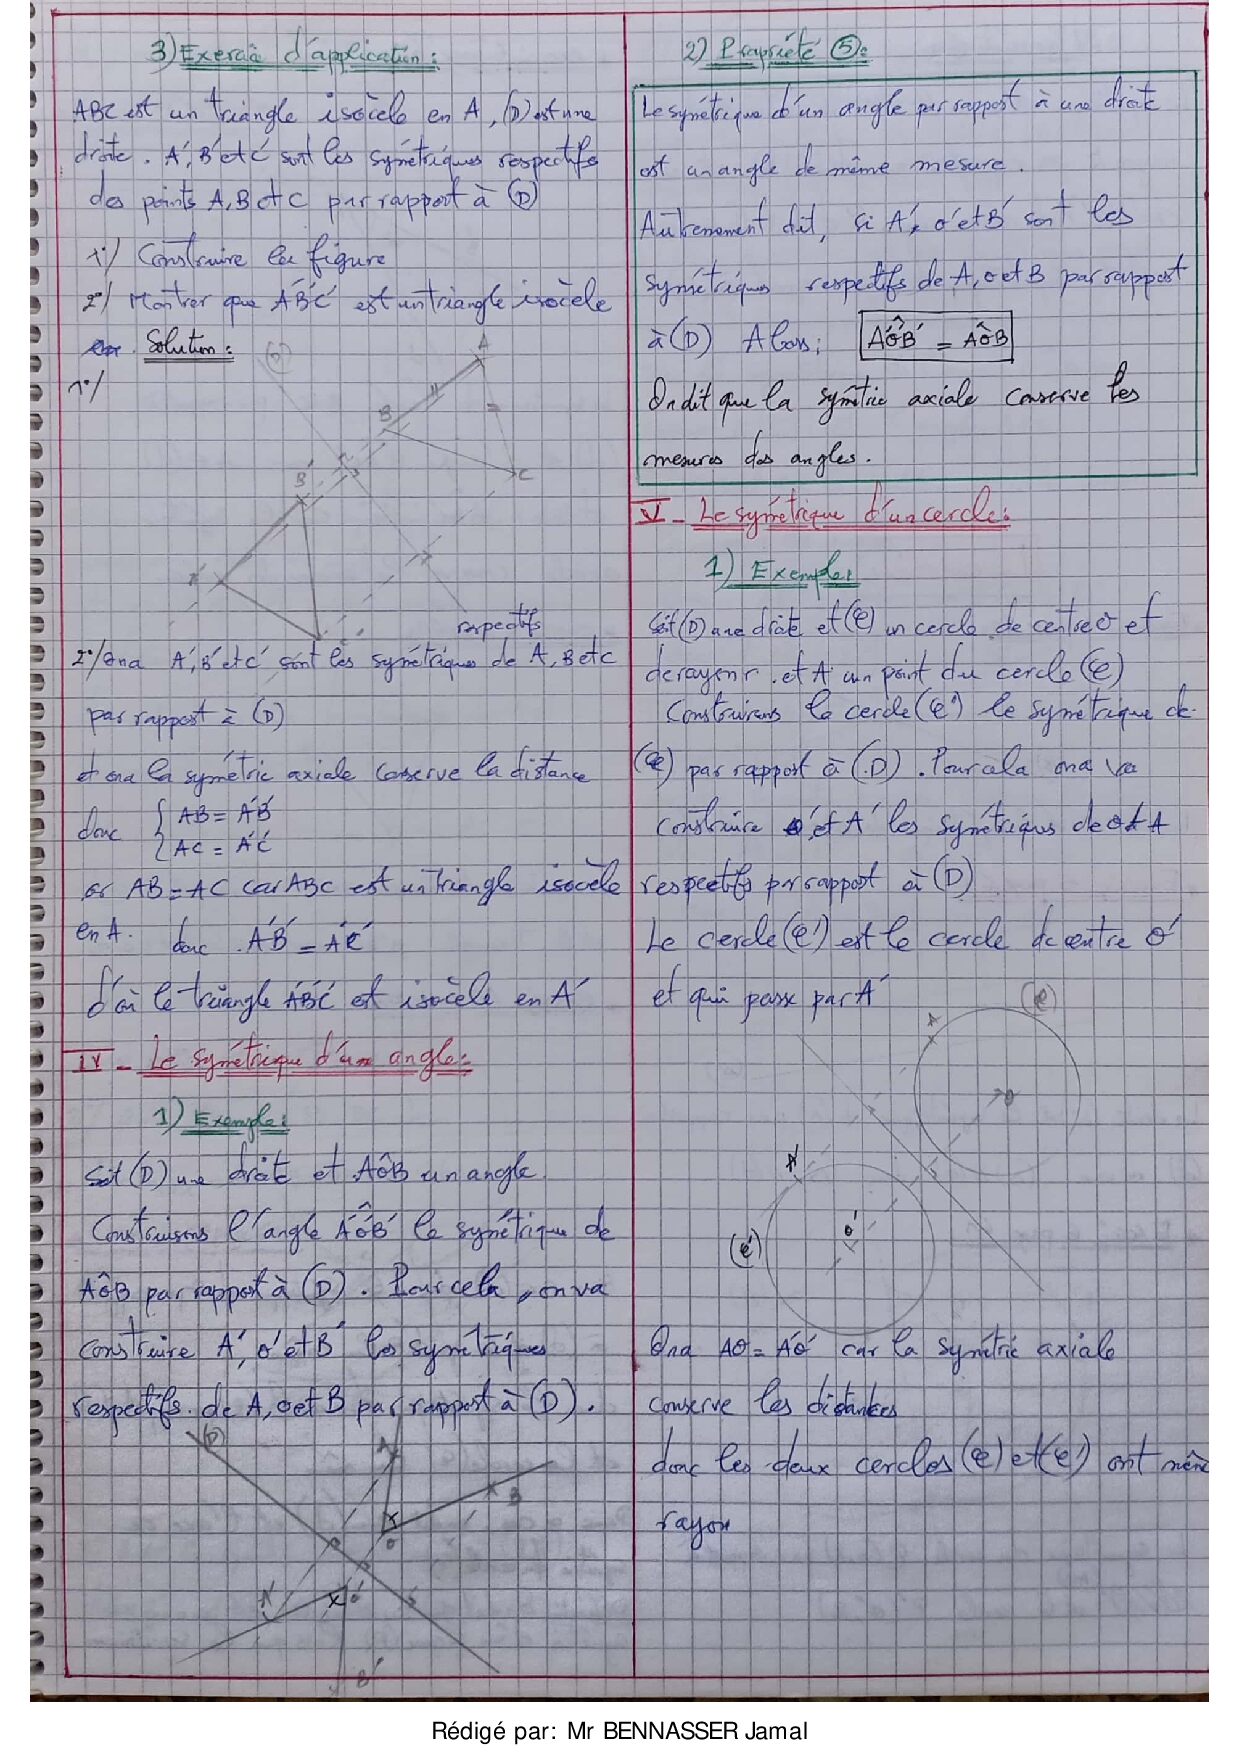 3) Exercice d'application :
ABC est un triangle isocèle en A, (D) est une
droite. A', B' et C' sont les symétriques respectifs
des points A, B et C par rapport à (D)
1°/ Construire la figure
2°/ Montrer que A'B'C' est un triangle isocèle
Solution :
1°/
(D)
A
B
C
B'
respectifs
2°/ Ona A', B' et C' sont les symétriques de A, B et C
par rapport à (D)
et ona la symétrie axiale conserve la distance
donc { AB = A'B'
AC = A'C'
or AB = AC car ABC est un triangle isocèle
en A. donc A'B' = A'C'
d'où le triangle A'B'C' est isocèle en A'
IV - Le symétrique d'un angle :
1) Exemple :
Soit (D) une droite et AÔB un angle.
Construisons l'angle A'Ô'B' le symétrique de
AÔB par rapport à (D). Pour cela, on va
construire A', O' et B' les symétriques
respectifs de A, O et B par rapport à (D).
(D)
A
B
O
A'
O'
B'
2) Propriété ⑤ :
Le symétrique d'un angle par rapport à une droite
est un angle de même mesure.
Autrement dit, si A', O' et B' sont les
symétriques respectifs de A, O et B par rapport
à (D) Alors : A'Ô'B' = AÔB
On dit que la symétrie axiale conserve les
mesures des angles.
V - Le symétrique d'un cercle :
1) Exemple :
Soit (D) une droite et (C) un cercle de centre O et
de rayon r. et A un point du cercle (C)
Construirons le cercle (C') le symétrique de
(C) par rapport à (D). Pour cela ona va
construire O' et A' les symétriques de O et A
respectifs par rapport à (D)
Le cercle (C') est le cercle de centre O'
et qui passe par A'
(C)
A
O
A'
O'
(C')
Ona AO = A'O' car la symétrie axiale
conserve les distances
donc les deux cercles (C) et (C') ont même
rayon
Rédigé par: Mr BENNASSER Jamal